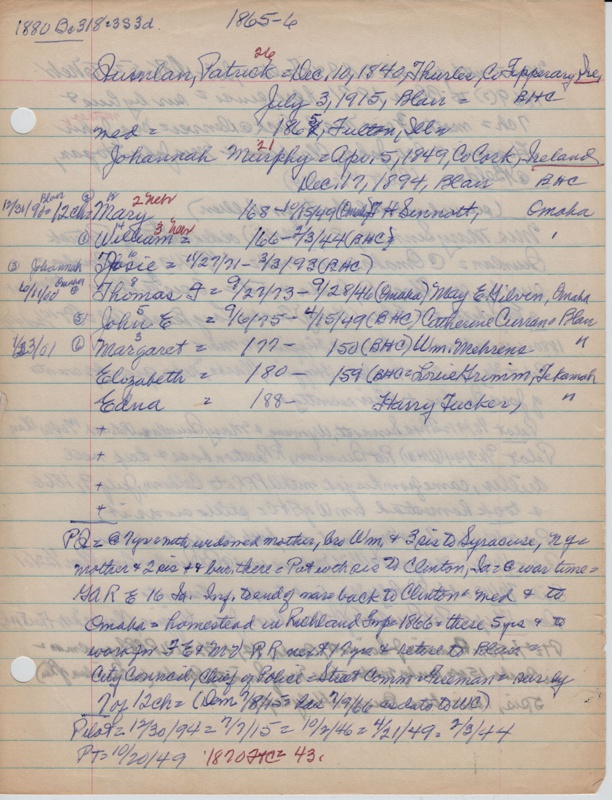 1880 Bo318=333d. 1865-6
26
Quinlan, Patrick = Dec. 10, 1840, Thurles, Co Tipperary, Ire,
July 3, 1915, Blair = BHC
med = 1865, Fulton, Ills
21
Johannah Murphy = Apr. 5, 1849, Co Cork, Ireland
Dec. 17, 1894, Blair BHC
12/31/900 Blair 12ch = Mary 2 Nebr 168 - 1/15/49 (Omaha) H Sennott, Omaha
① William = 3 Nebr 166 - 2/3/44 (BHC) "
③ Johannah Josie = 11/27/71 - 3/3/93 (BHC)
6/11/00 Omaha Thomas 8 = 9/27/73 - 9/28/46 (Omaha) May E Gilven, Omaha
⑤ John E 5 = 9/6/75 - 4/15/49 (BHC) Catherine Curran = Blair
⑥ Margaret 3 = 177 - 150 (BHC) Wm. Mehrens "
Elizabeth = 180 - 159 (BHC = Louie Grimm, Tekamah
Edna = 188 - Harry Tucker, "
+
+
+
+
PQ = @ 7yr = with widowed mother, bro Wm, & 3 sis to Syracuse, N.Y. =
mother & 2 sis + & bur. there = Pat with sis to Clinton, Ia = @ war time =
GAR E 16 Ia. Inf. to end of war = back to Clinton = med & to
Omaha = homestead in Richland Twp = 1866 = there 5 yrs & to
work for F E & MV RR next 19 yrs & retire to Blair =
City Council, Chief of Police = Street Comm = Fireman = surv by
7 of 12ch = (Dem 7/8/15 = has 7/9/66 as date to WC)
Pilot = 12/30/94 = 7/7/15 = 10/2/46 = 4/21/49 = 2/3/44
PT = 10/20/49 1870 FtC = 43.